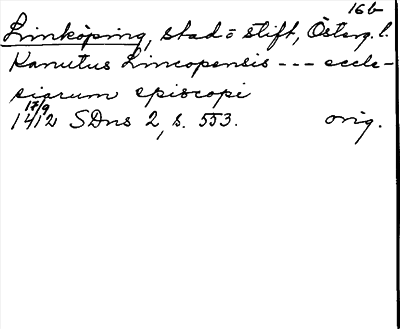 16b
Linköping, stad o stift, Österg. l.
Kanutus Lincopensis --- eccle-
siarum episcopi
17/9
1412 SDns 2, s. 553. orig.